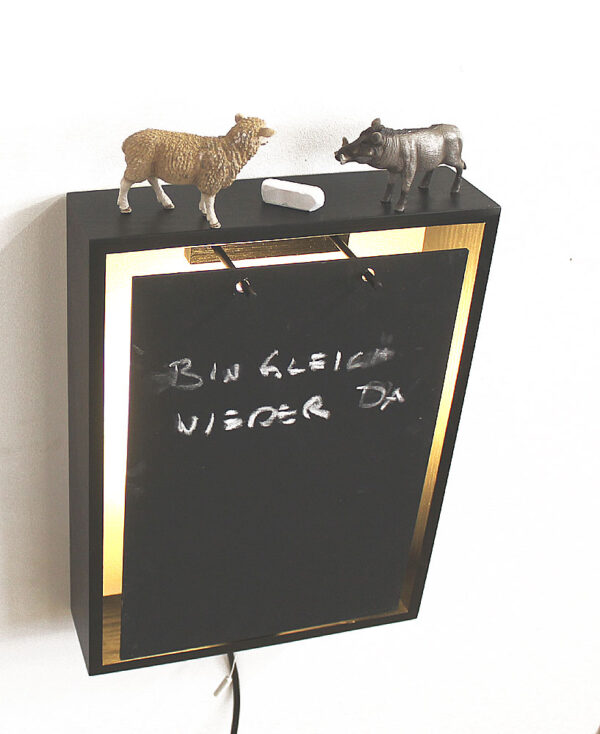 BIN GLEICH
WIEDER DA